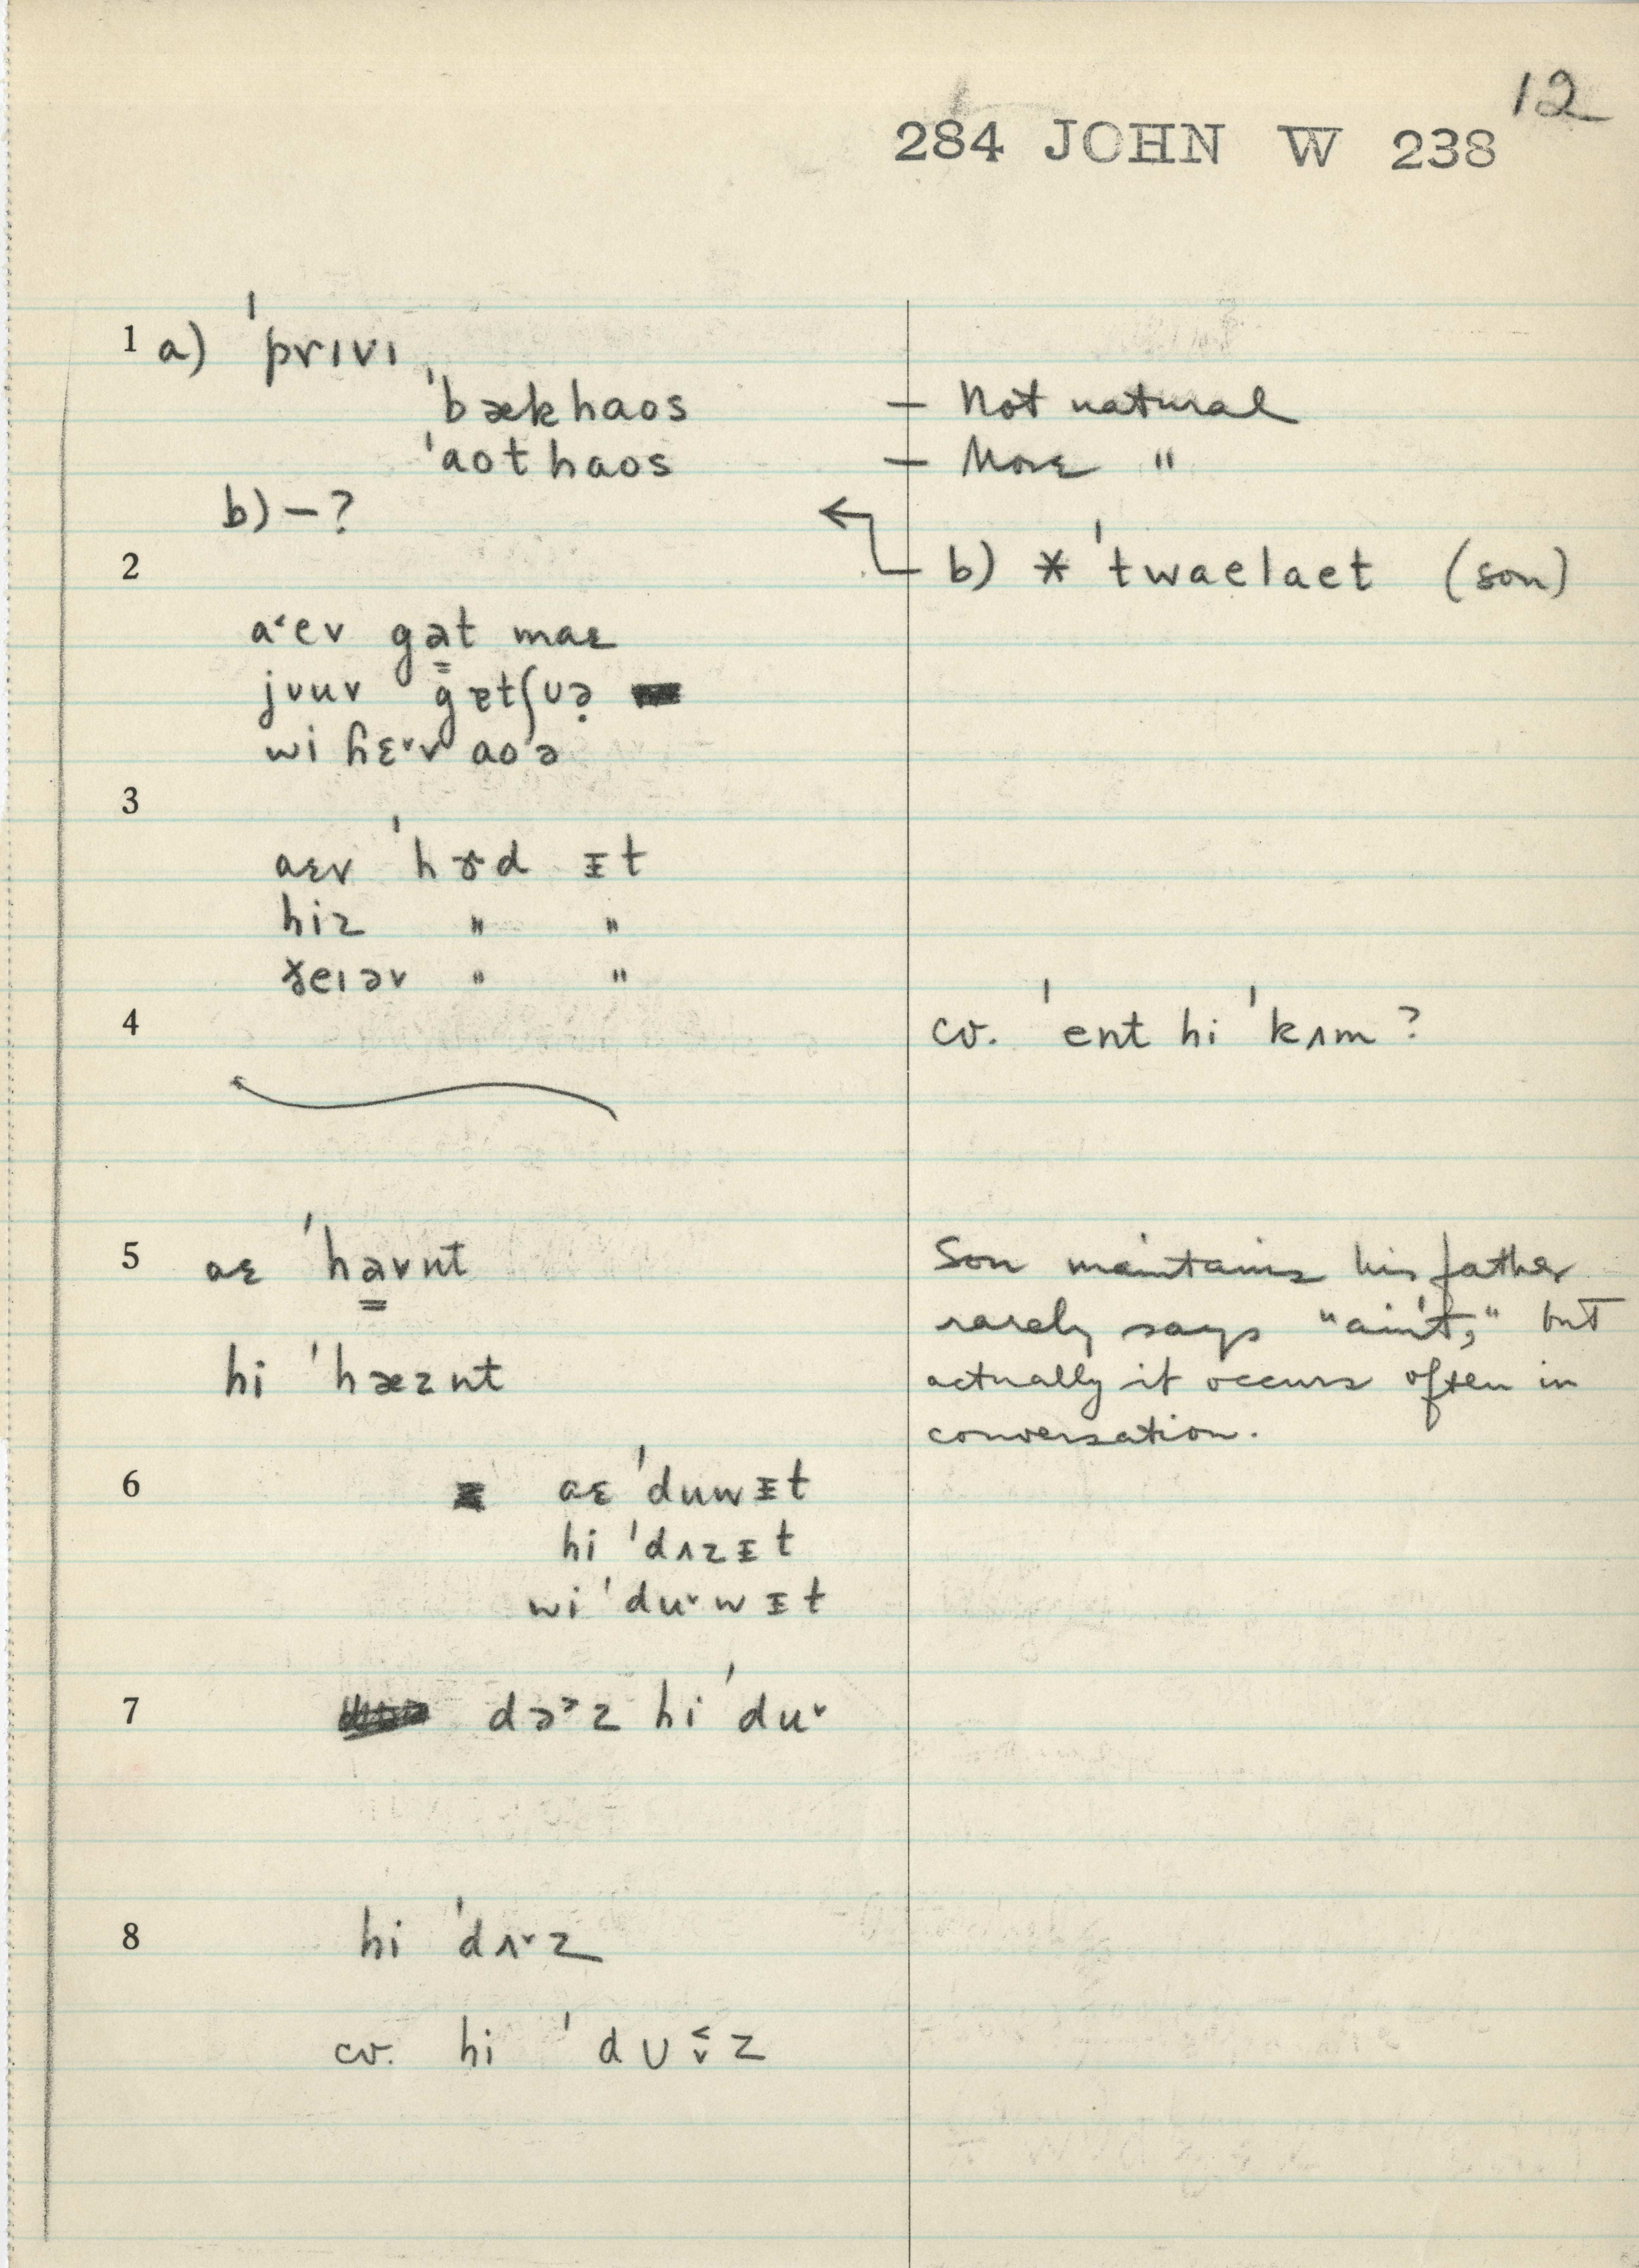 12
284 JOHN W 238
1 a) ˈprɪvɪ
ˈbækhaos — Not natural
ˈaothaos — More "
b) – ?
2 b) * ˈtwaelaet (son)
a˂ev gə̳t maɛ
jʊuv gɐtʃʊə̣
wi ɦɛ˅v aoˈə
3
aɛv ˈhɤd ᵻt
hiz " "
ɣeɪəv " "
4 cv. ˈent hi ˈkʌm ?
5 aɛ ˈha̳vnt Son maintains his father
rarely says "ain't," but
hi ˈhæznt actually it occurs often in
conversation.
6 aɛ ˈduwᵻt
hi ˈdʌzᵻt
wi ˈdu˅wᵻt
7 də˃z hi ˈdu˅
8 hi ˈdʌ˅z
cv. hi ˈdʊ˂˅z